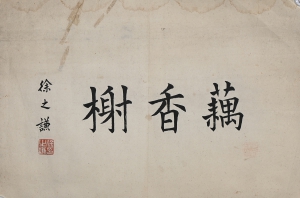 藕香榭
徐之謙